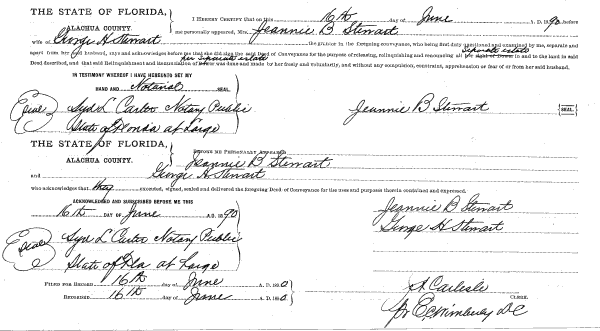 THE STATE OF FLORIDA,
ALACHUA COUNTY.
I HEREBY CERTIFY that on this 16th day of June A. D. 1890, before
me personally appeared, Mrs. Jeannie B Stewart
wife of George H Stewart the grantor in the foregoing conveyance, who being first duly questioned and examined by me, separate and
apart from her said husband, says and acknowledges before me that she did sign the said Deed of Conveyance for the purpose of releasing, relinquishing and renouncing all her separate estate in and to the land in said
Deed described, and that said Relinquishment and Renunciation of her separate estate was done and made by her freely and voluntarily, and without any compulsion, constraint, apprehension or fear of or from her said husband.
IN TESTIMONY WHEREOF I HAVE HEREUNTO SET MY
HAND AND Notarial SEAL
Seal
Syd L Carter Notary Public
State of Florida at Large
Jeannie B Stewart SEAL
THE STATE OF FLORIDA,
ALACHUA COUNTY.
BEFORE ME PERSONALLY APPEARED
Jeannie B Stewart
and George H Stewart
who acknowledges that they executed, signed, sealed and delivered the foregoing Deed of Conveyance for the uses and purposes therein contained and expressed.
ACKNOWLEDGED AND SUBSCRIBED BEFORE ME THIS
16th DAY OF June A.D. 1890
Jeannie B Stewart
George H Stewart
Seal
Syd L Carter Notary Public
State of Fla at Large
FILED FOR RECORD 16th day of June A. D. 1890
RECORDED 16th day of June A. D. 1890
Carlisle
CLERK.
D C